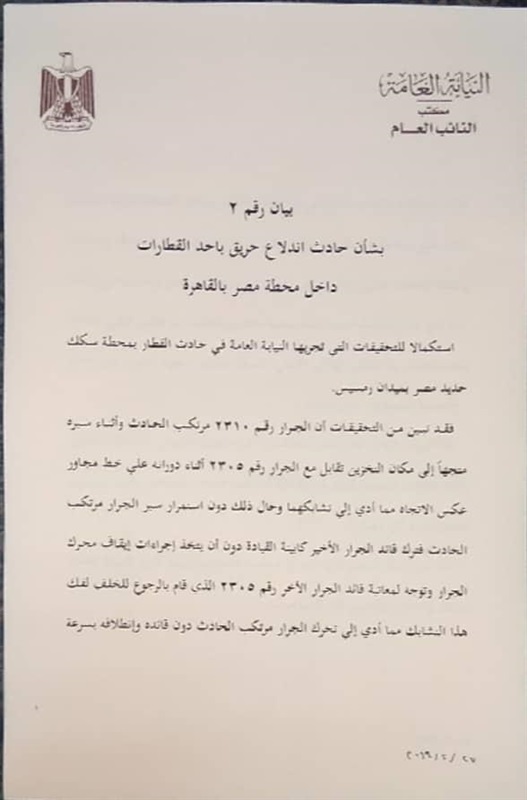 النيابة العامة
مكتب
النائب العام
بيان رقم ٢
بشأن حادث اندلاع حريق باحد القطارات
داخل محطة مصر بالقاهرة
استكمالا للتحقيقات التى تجريها النيابة العامة في حادث القطار بمحطة سكك
حديد مصر بميدان رمسيس.
فقد تبين من التحقيقات أن الجرار رقم ٢٣١٠ مرتكب الحادث وأثناء سيره
متجهاً إلى مكان التخزين تقابل مع الجرار رقم ٢٣٠٥ أثناء دورانه علي خط مجاور
عكس الاتجاه مما أدي إلي تشابكهما وحال ذلك دون استمرار سير الجرار مرتكب
الحادث فترك قائد الجرار الأخير كابينة القيادة دون أن يتخذ إجراءات إيقاف محرك
الجرار وتوجه لمعاتبة قائد الجرار الأخر رقم ٢٣٠٥ الذى قام بالرجوع للخلف لفك
هذا التشابك مما أدي إلي تحرك الجرار مرتكب الحادث دون قائده وإنطلاقه بسرعة
٢٠١٩/٢/٢٧